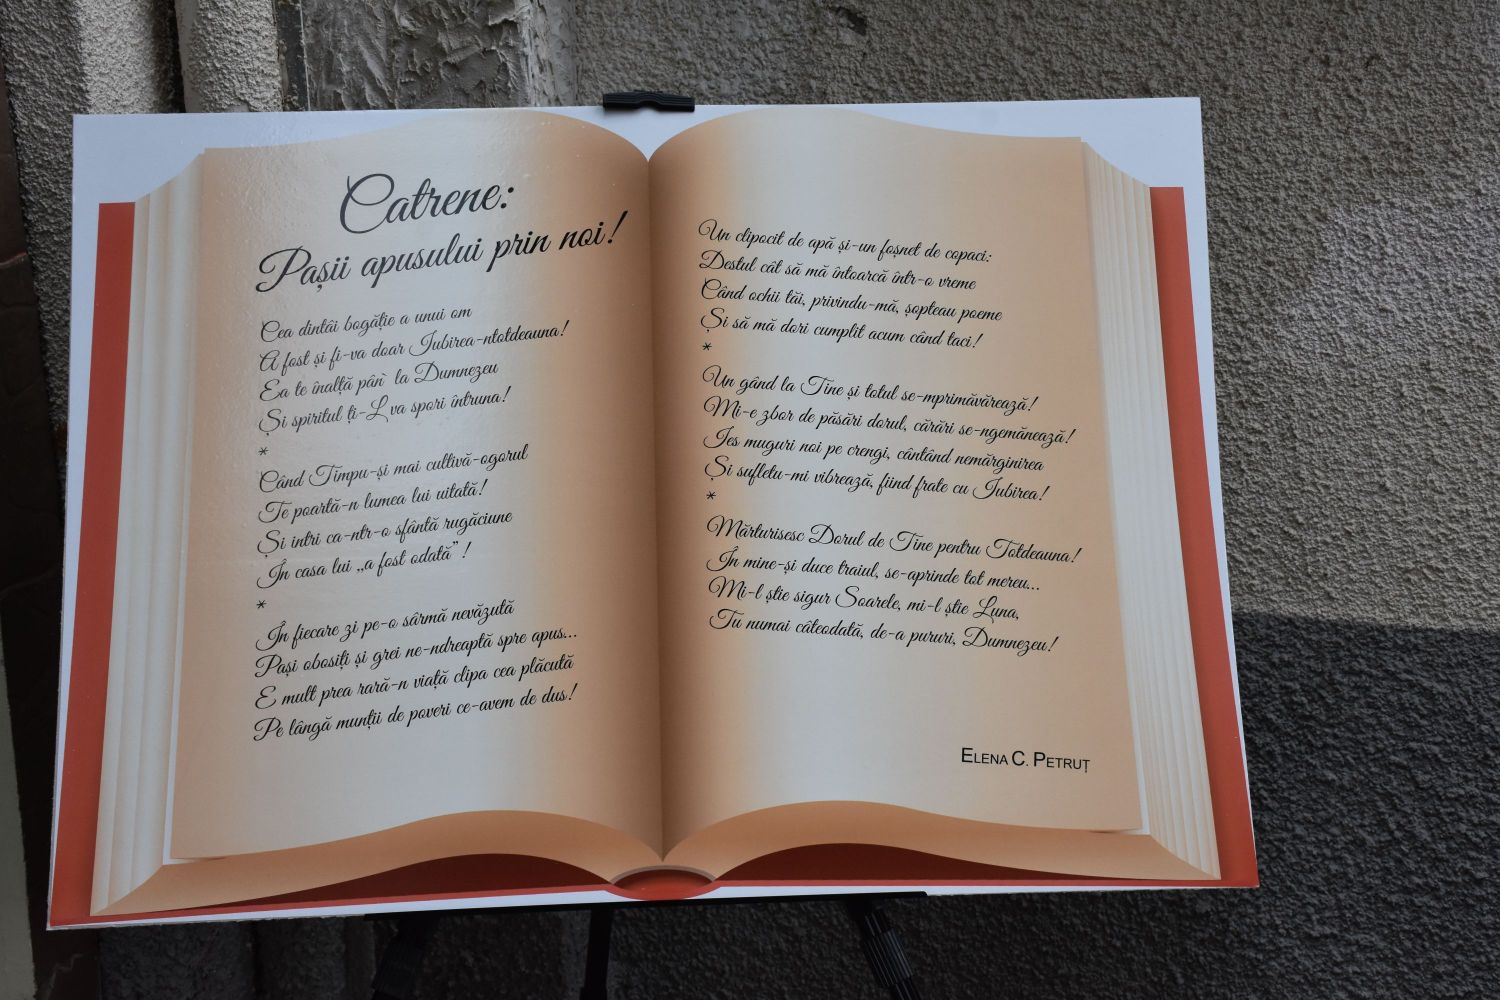 Catrene:
Pașii apusului prin noi!
Cea dintâi bogăție a unui om
A fost și fi-va doar Iubirea-ntotdeauna!
Ea te înalță pân` la Dumnezeu
Și spiritul ți-L va spori întruna!
*
Când Timpu-și mai cultivă-ogorul
Te poartă-n lumea lui uitată!
Și intri ca-ntr-o sfântă rugăciune
În casa lui „a fost odată”!
*
În fiecare zi pe-o sârmă nevăzută
Pași obosiți și grei ne-ndreaptă spre apus...
E mult prea rară-n viață clipa cea plăcută
Pe lângă munții de poveri ce-avem de dus!
Un clipocit de apă și-un foșnet de copaci:
Destul cât să mă întoarcă într-o vreme
Când ochii tăi, privindu-mă, șopteau poeme
Și să mă dori cumplit acum când taci!
*
Un gând la Tine și totul se-mprimăvărează!
Mi-e zbor de păsări dorul, cărări se-ngemănează!
Ies muguri noi pe crengi, cântând nemărginirea
Și sufletu-mi vibrează, fiind frate cu Iubirea!
*
Mărturisesc Dorul de Tine pentru Totdeauna!
În mine-și duce traiul, se-aprinde tot mereu...
Mi-l știe sigur Soarele, mi-l știe Luna,
Tu numai câteodată, de-a pururi, Dumnezeu!
ELENA C. PETRUȚ